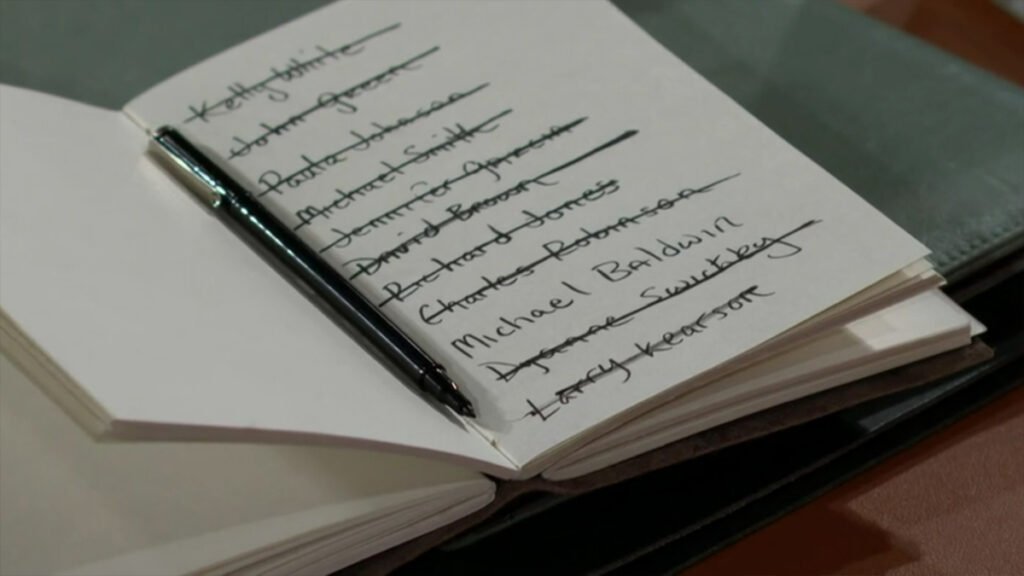 Kelly White
John Green
Paula Johnson
Michael Smith
Jennifer
David Brown
Richard Jones
Charles Robinson
Michael Baldwin
Dyanne Swickley
Larry Kearson